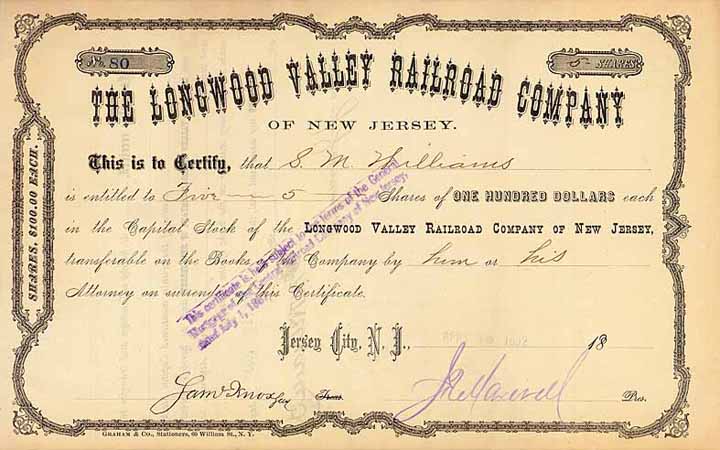 No. 80
5 SHARES
THE LONGWOOD VALLEY RAILROAD COMPANY
OF NEW JERSEY.
This is to Certify, that S. M. Williams
is entitled to Five — 5 Shares of ONE HUNDRED DOLLARS each
in the Capital Stock of the LONGWOOD VALLEY RAILROAD COMPANY OF NEW JERSEY,
transferable on the Books of the Company by him or his
Attorney on surrender of this Certificate.
Jersey City, N. J., 18
Treas.
J R Maxwell Pres.
SHARES, $100.00 EACH.
This certificate is held subject to the terms of the General
Mortgage of the Central Railroad Company of New Jersey,
dated July 1, 188
GRAHAM & Co., Stationers, 60 William St., N. Y.